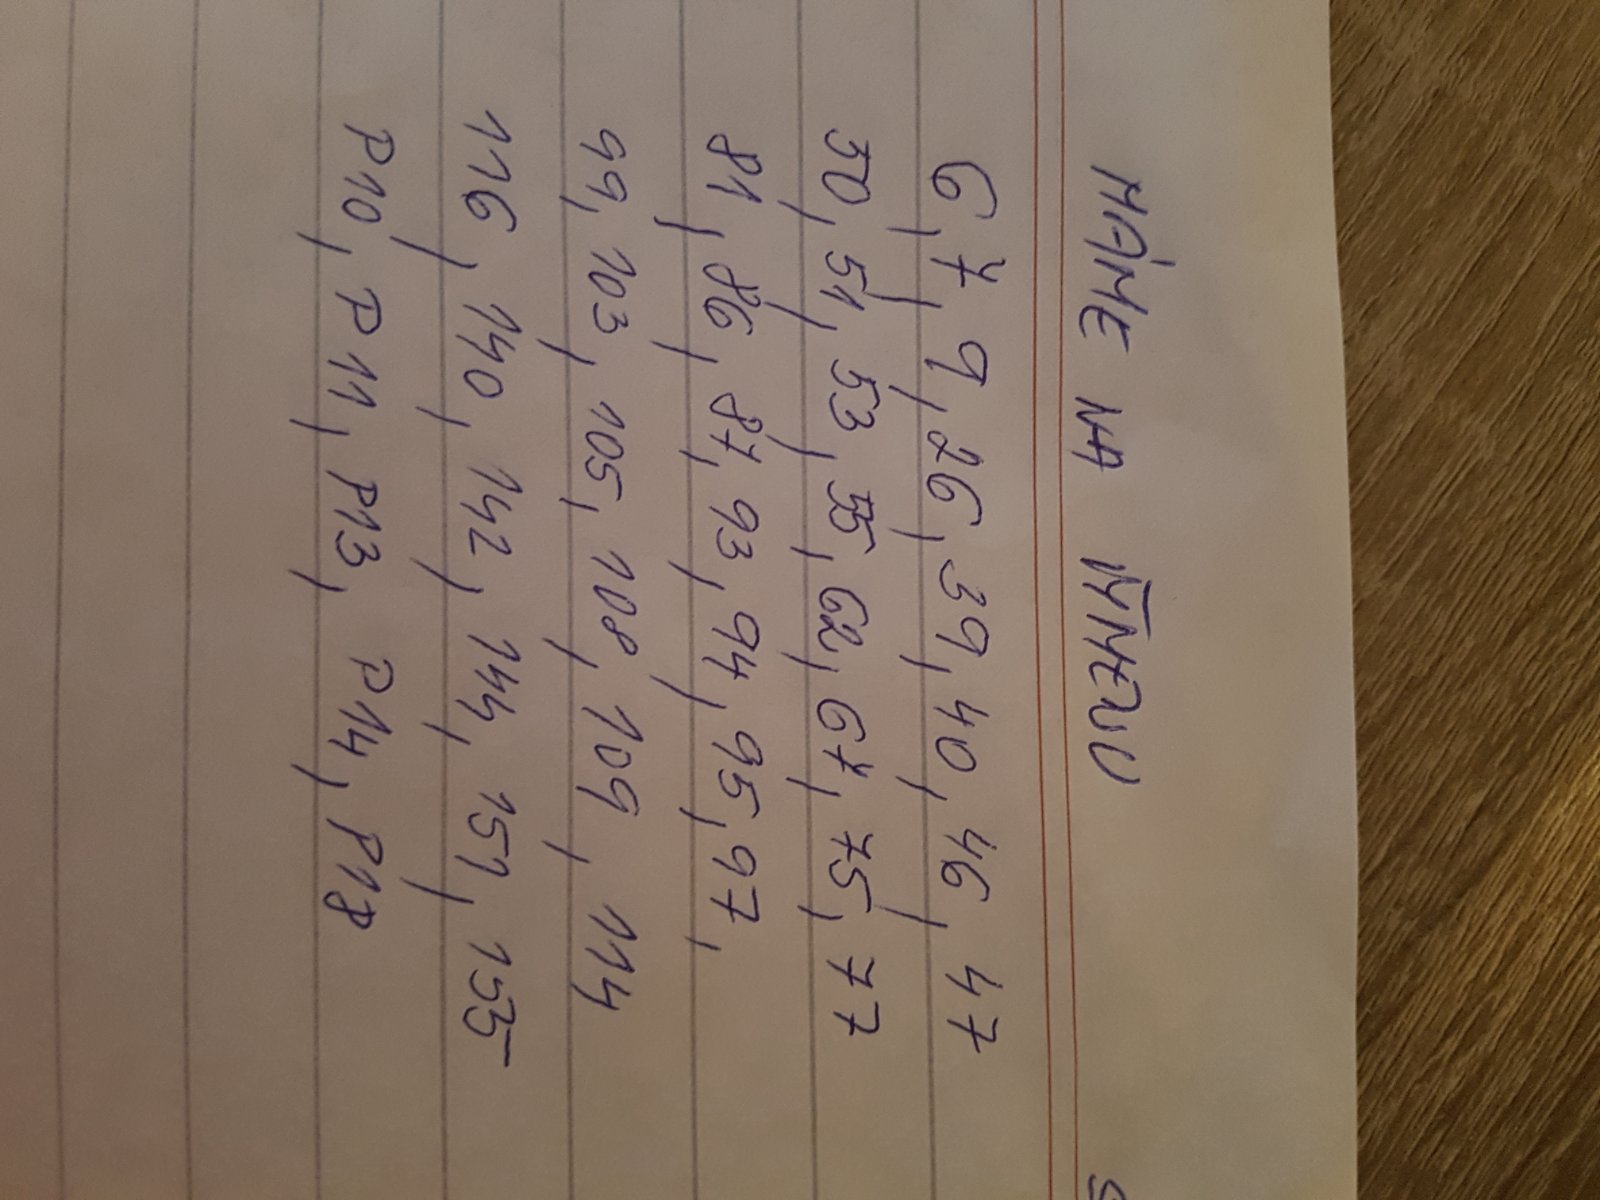 MÁME NA VÝMENU
6, 7, 9, 26, 39, 40, 46, 47
50, 51, 53, 55, 62, 67, 75, 77
81, 86, 87, 93, 94, 95, 97,
99, 103, 105, 108, 109, 114
116, 140, 142, 144, 151, 155
P10, P11, P13, P14, P18